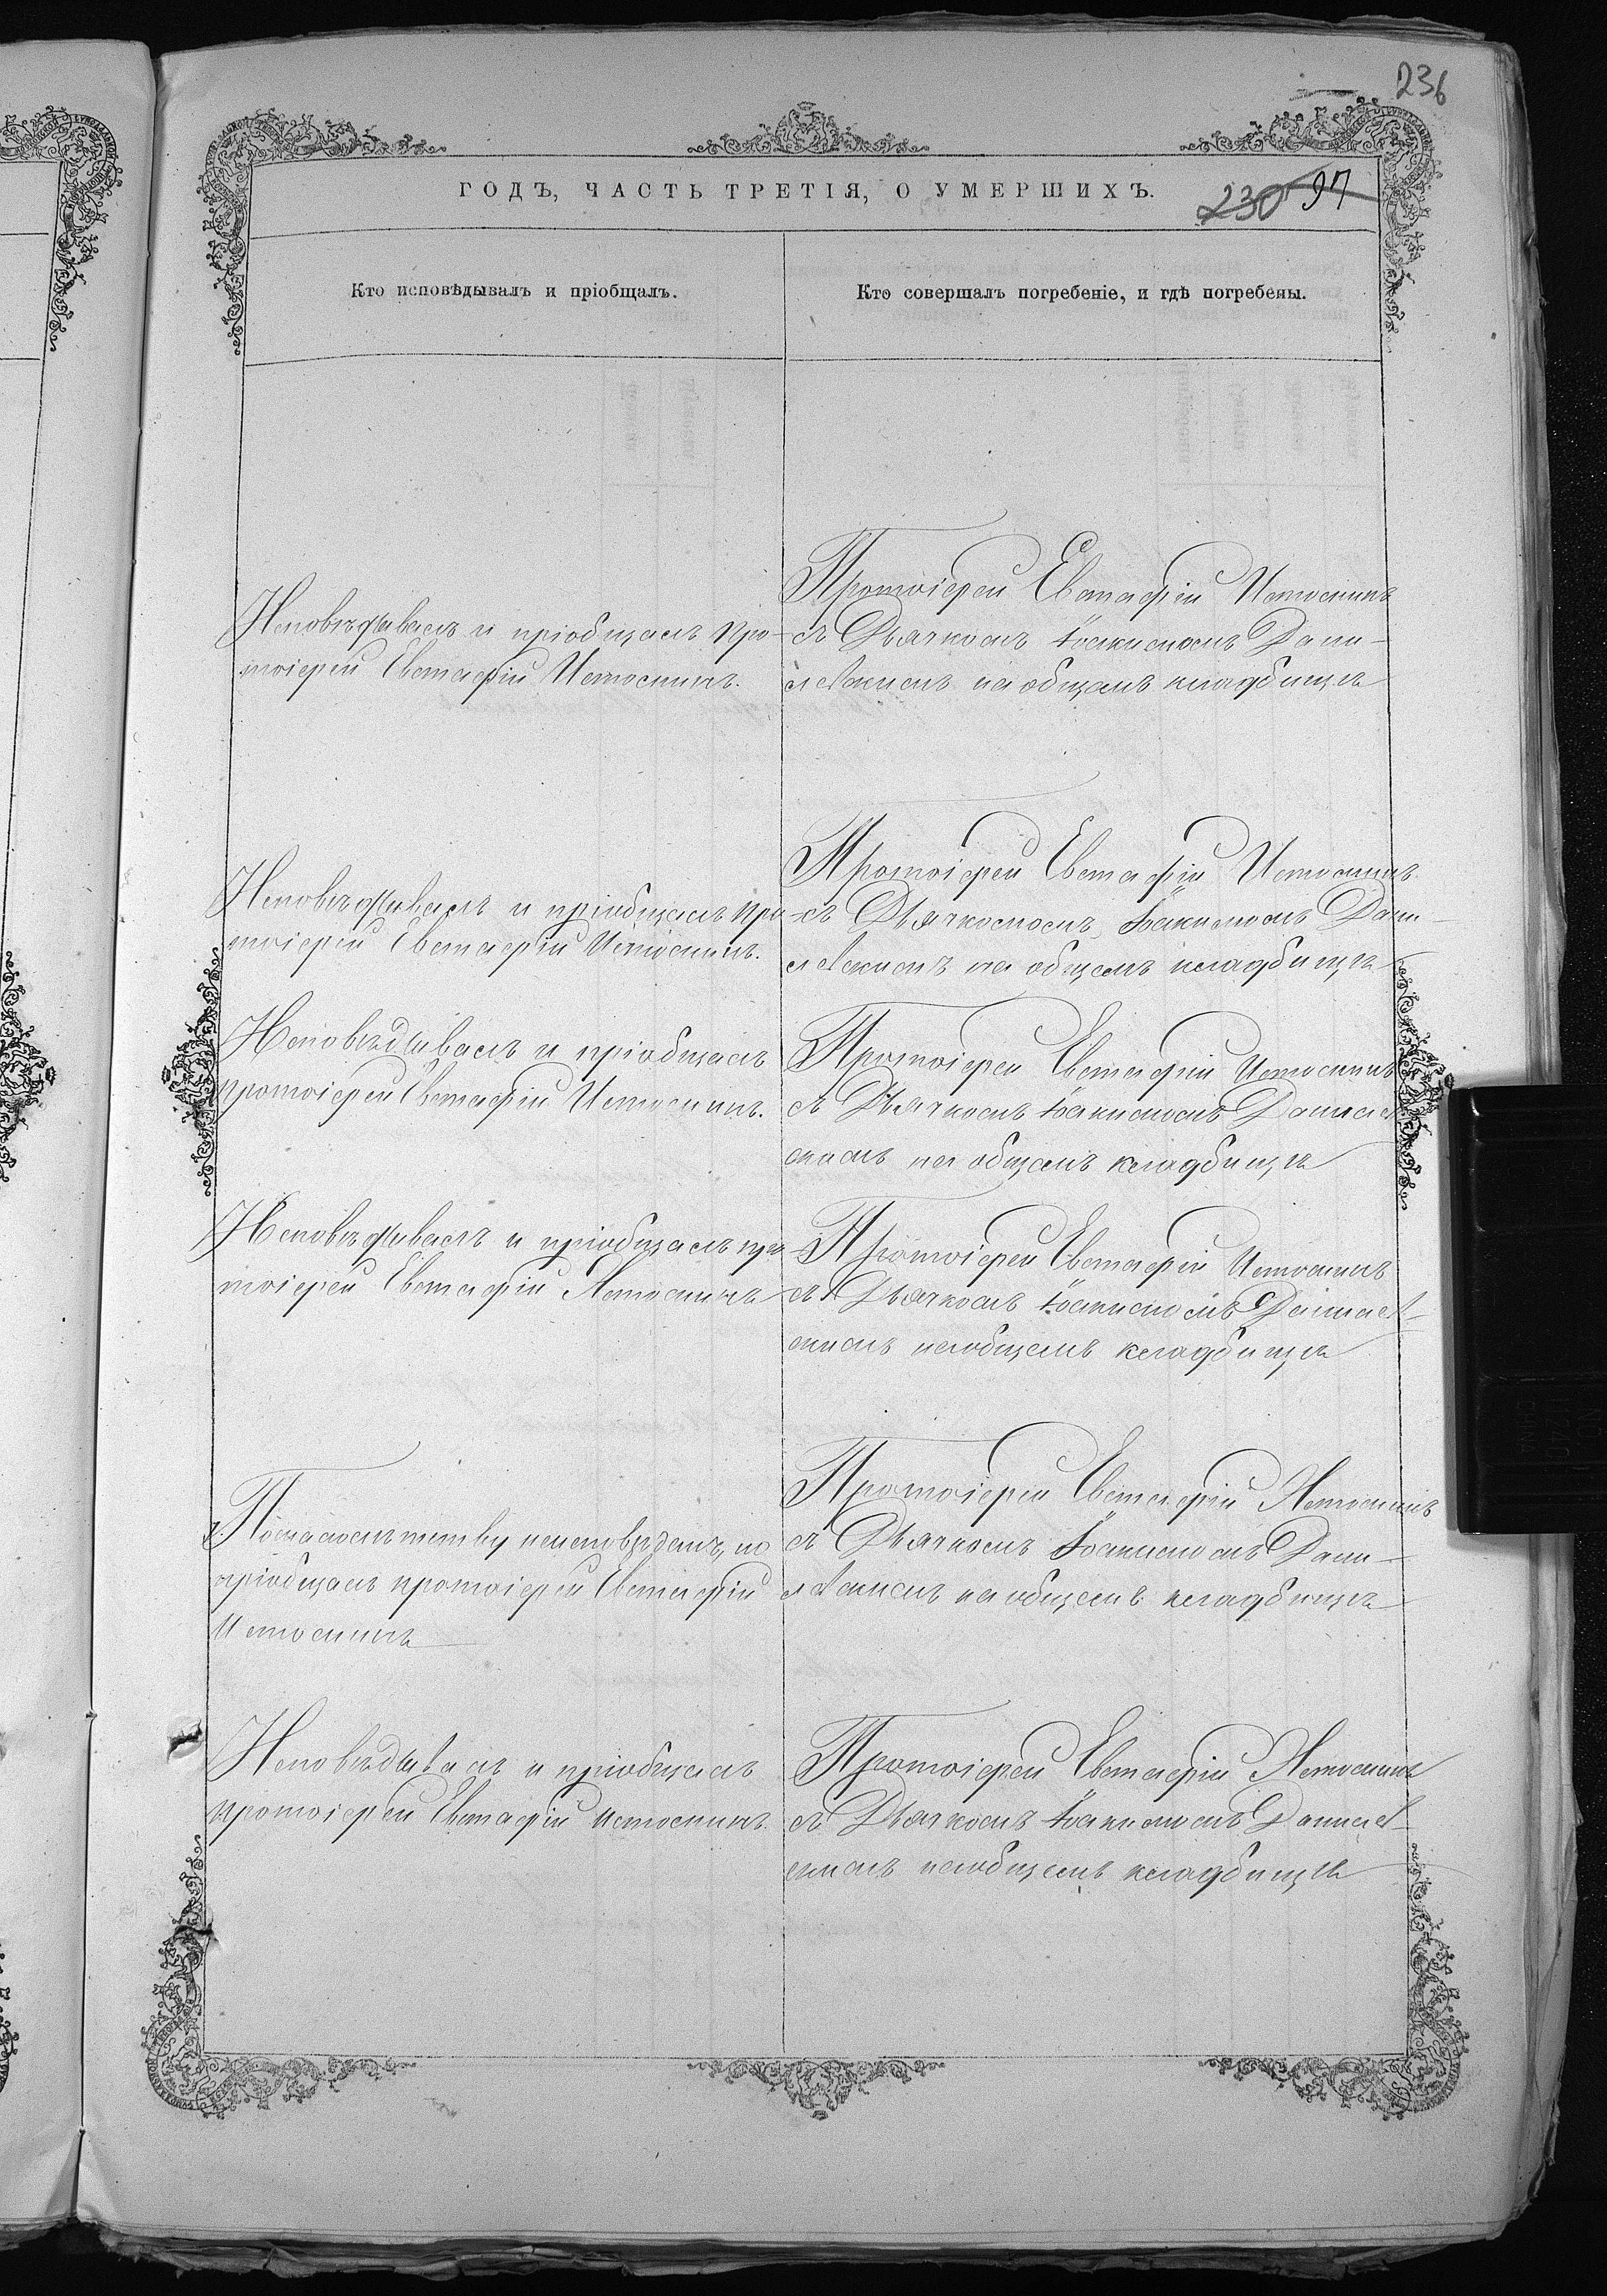 236
ГОДЪ, ЧАСТЬ ТРЕТІЯ, О УМЕРШИХЪ.
230 97
Кто исповѣдывалъ и пріобщалъ.
Кто совершалъ погребеніе, и гдѣ погребены.
Исповѣдывалъ и пріобщалъ про-
тоіерей Евстафій Истоминъ.
Протоіерей Евстафій Истоминъ
съ Дьячкомъ Іоакимомъ Дани-
левскимъ на общемъ кладбищѣ
Исповѣдывалъ и пріобщалъ про-
тоіерей Евстафій Истоминъ.
Протоіерей Евстафій Истоминъ
съ Дьячкомомъ Іоакимомъ Дани-
левскимъ на общемъ кладбищѣ
Исповѣдывалъ и пріобщалъ
протоіерей Евстафій Истоминъ.
Протоіерей Евстафій Истоминъ
съ Дьячкомъ Іоакимомъ Данилев
скимъ на общемъ кладбищѣ
Исповѣдывалъ и пріобщалъ про-
тоіерей Евстафій Истоминъ
Протоіерей Евстафій Истоминъ
съ Дьячкомъ Іоакимомъ Данилев-
скимъ на общемъ кладбищѣ
По малолѣтству неисповѣданъ, но
пріобщалъ протоіерей Евстафій
Истоминъ
Протоіерей Евстафій Истоминъ
съ Дьячкомъ Іоакимомъ Дани-
левскимъ на общемъ кладбищѣ
Исповѣдывалъ и пріобщалъ
протоіерей Евстафій Истоминъ.
Протоіерей Евстафій Истоминъ
съ Дьячкомъ Іоакимомъ Данилев-
скимъ на общемъ кладбищѣ